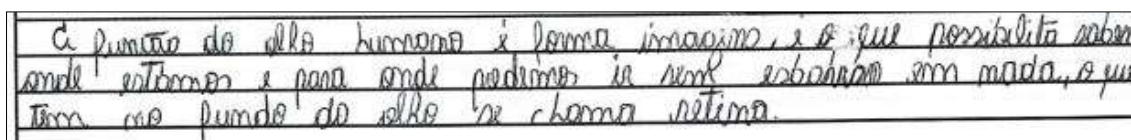 A função do olho humano é forma imagins, é o que possibilita saber
onde estamos e para onde podemos ir sem esbarrão em nada, o que
tem no fundo do olho se chama retina.